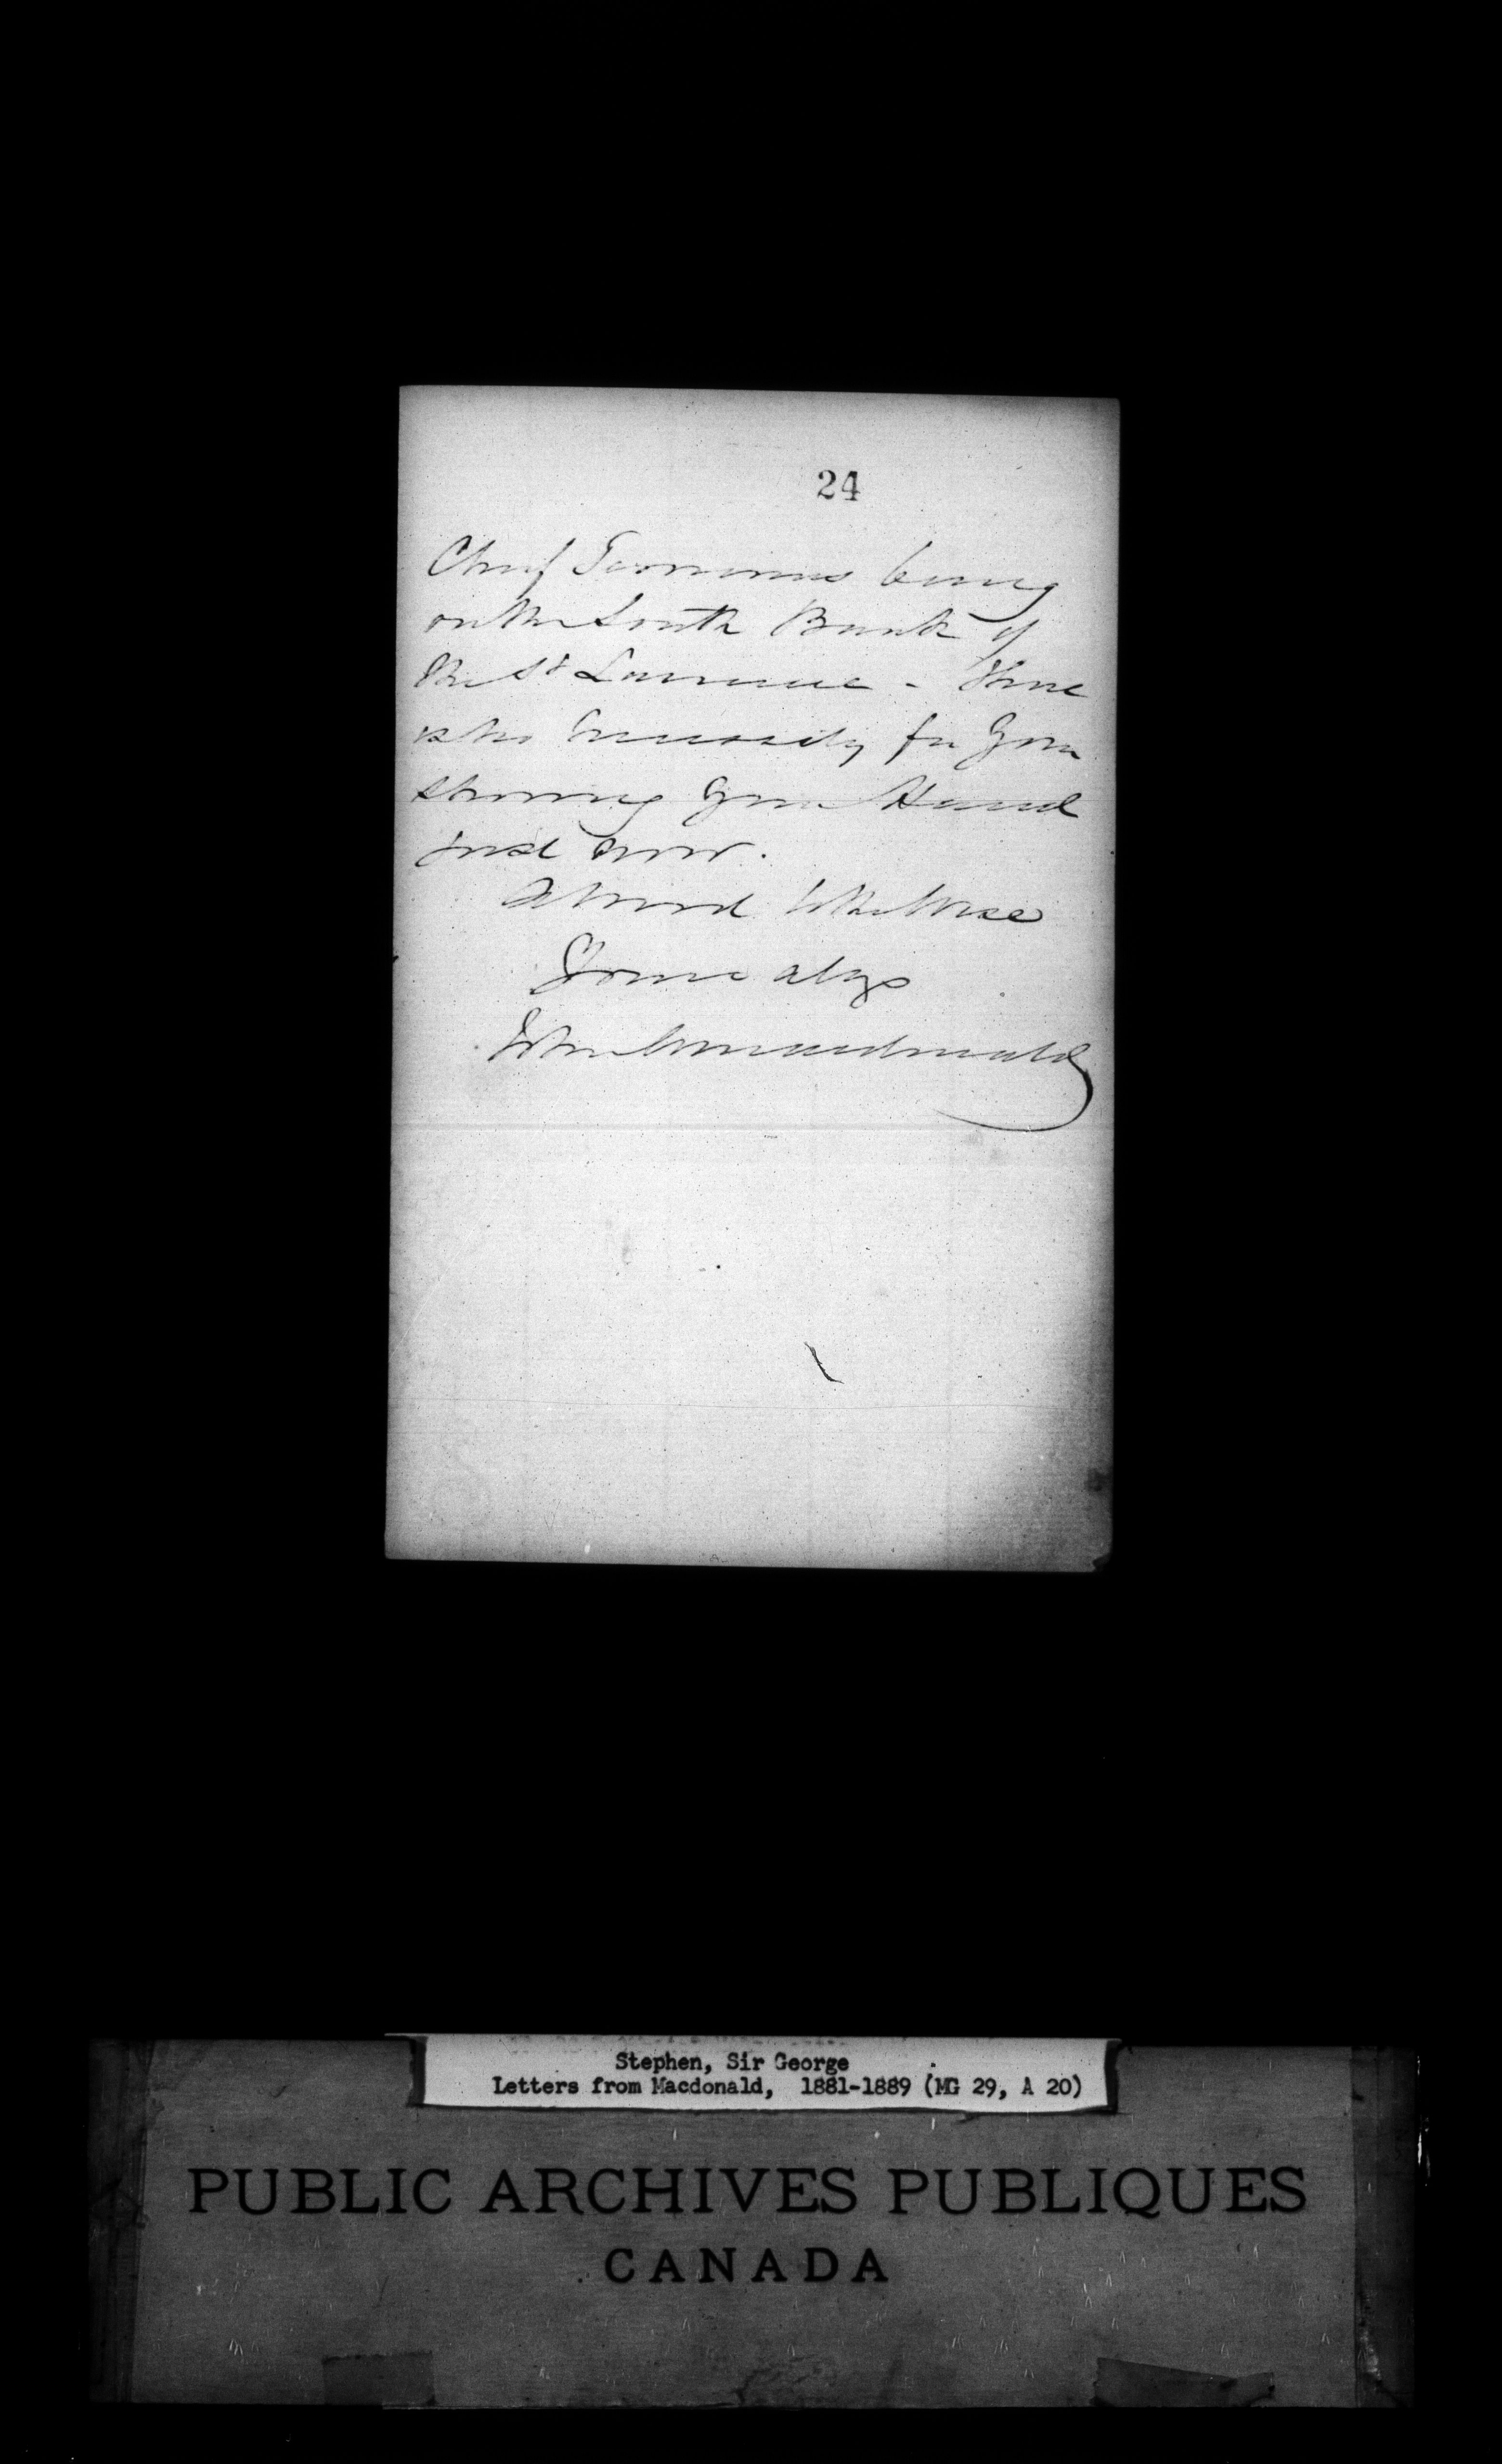 24
Chief Terminus being
on the South Bank of
the St Lawrence - There
is no necessity for your
showing your Hand
just now.
A word to the Wise
Yours always
John A Macdonald
Stephen, Sir George
Letters from Macdonald, 1881-1889 (MG 29, A 20)
PUBLIC ARCHIVES PUBLIQUES
CANADA